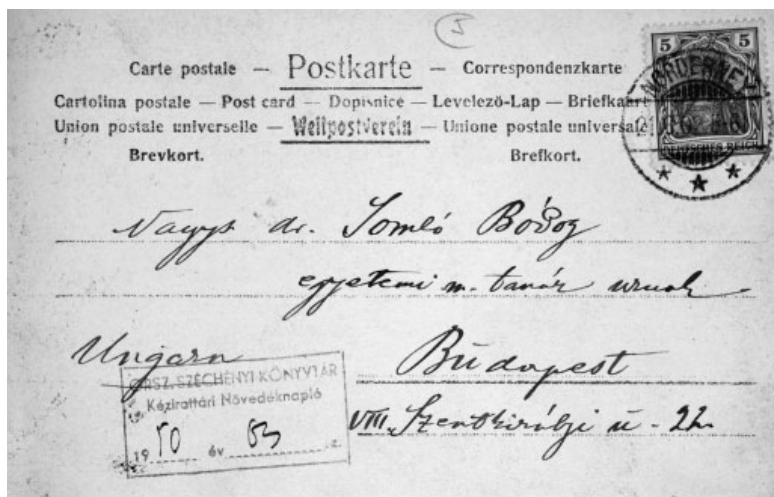 5
5 5
Carte postale — Postkarte — Correspondenzkarte
Cartolina postale — Post card — Dopisnice — Levelező-Lap — Briefkaart
Union postale universelle — Weltpostverein — Unione postale universale
Brevkort. Brefkort.
NORDERNEY
DEUTSCHES REICH
Nagys. dr. Somló Bódog
egyetemi m. tanár urnak
Ungarn Budapest
ORSZ. SZÉCHÉNYI KÖNYVTÁR
Kézirattári Növedéknapló
1950 év 63 sz.
VIII. Szentkirályi u. 22.